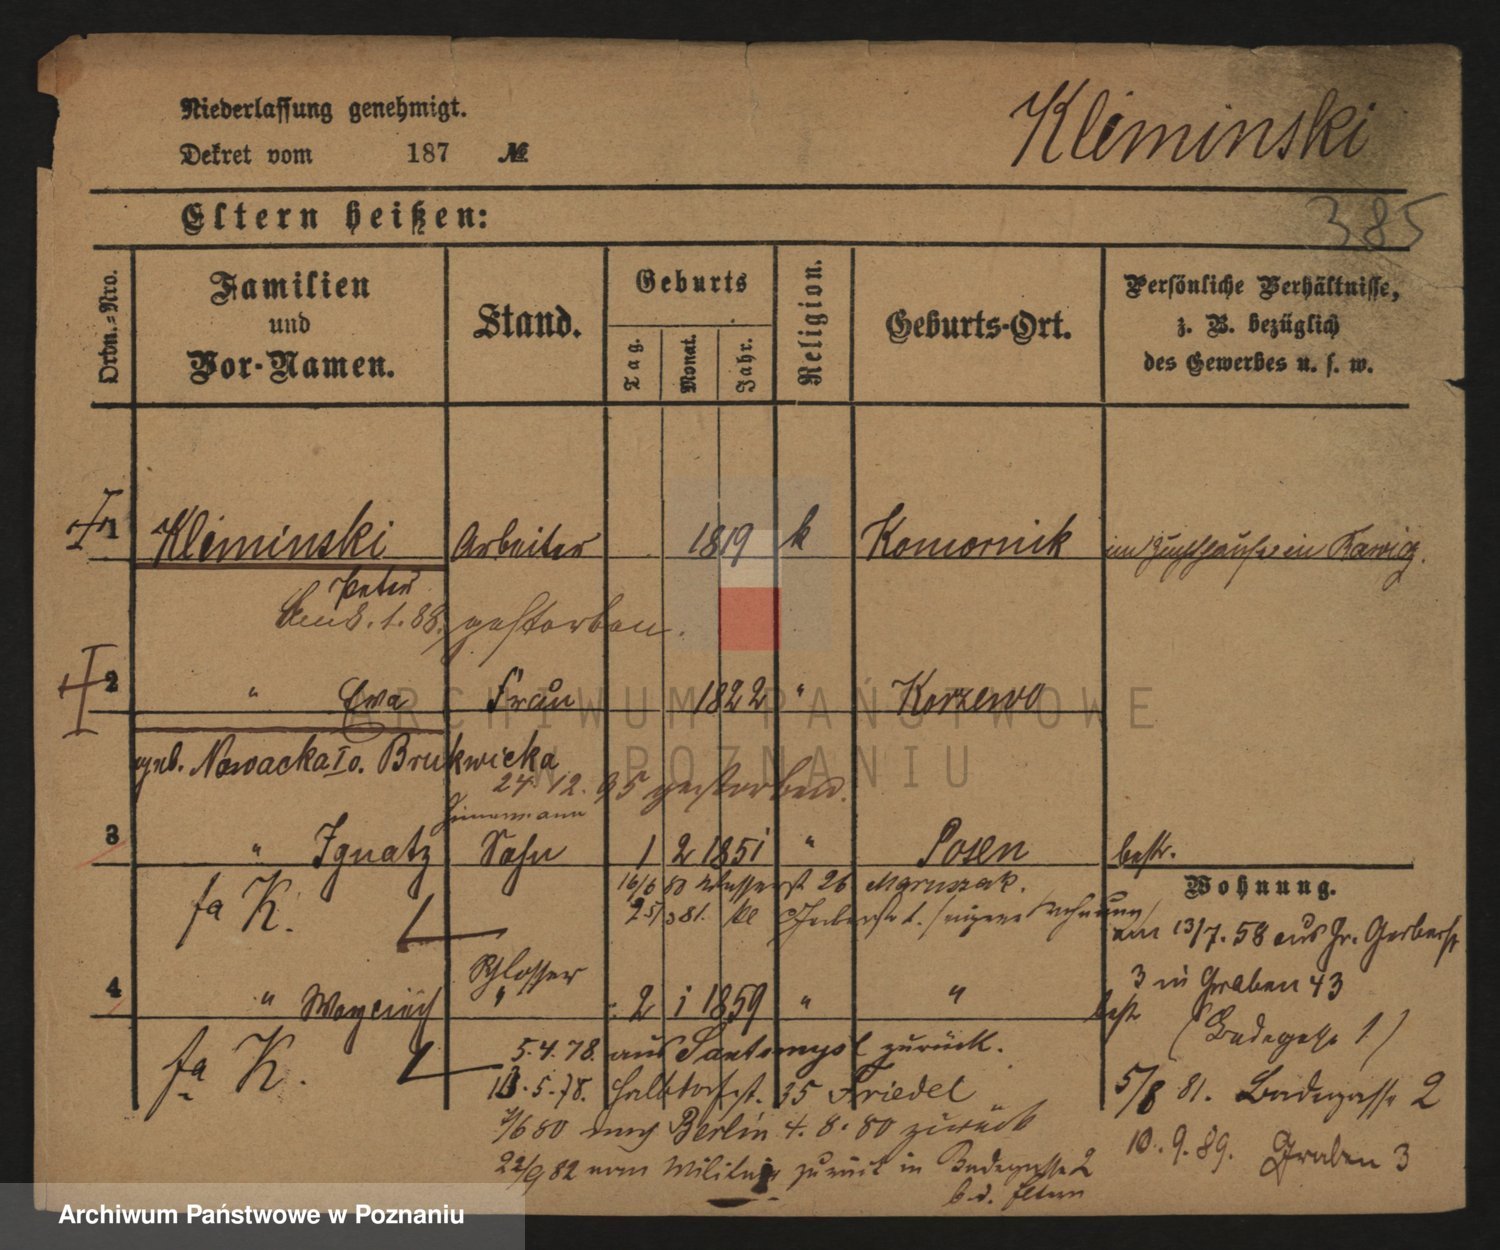 Niederlassung genehmigt.
Kliminski
Dekret vom 187 №
Eltern heißen:
385
Ordn.=Nro.
Familien und Vor-Namen.
Stand.
Geburts
Tag.
Monat.
Jahr.
Religion.
Geburts-Ort.
Persönliche Verhältnisse,
z. B. bezüglich
des Gewerbes u. s. w.
1 Kliminski Arbeiter 1819 k Komornik im Zuchthause in Rawicz.
Peter
8.1.88. gestorben.
2 " Eva Frau 1822 " Korzewo
geb. Nowacka I o. Brukwicka
24 12. 95 gestorben.
Zimmermann
3 " Ignatz Sohn 1 2 1851 " Posen bestr.
fa K.
16/6 80 Wasserst 26 Maruszak.
Wohnung.
25/3 81. kl Gerberst 1. (eigene Wohnung)
am 13/7.58 aus Gr. Gerberst
3 in Graben 43
Schlosser
4 " Woyciech " 2 1 1859 " " bestr
(Badegasse 1)
fa K.
5.4.78. aus Santomysl zurück.
13.5.78. Halbdorfst. 35 Friedel
5/8 81. Badegasse 2
7/6 80 nach Berlin 4.8.80 zurück
10.9.89. Graben 3
22/9 82 vom Militair zurück in Badegasse 2
b. d. Eltern
ARCHIWUM PAŃSTWOWE
W POZNANIU
Archiwum Państwowe w Poznaniu